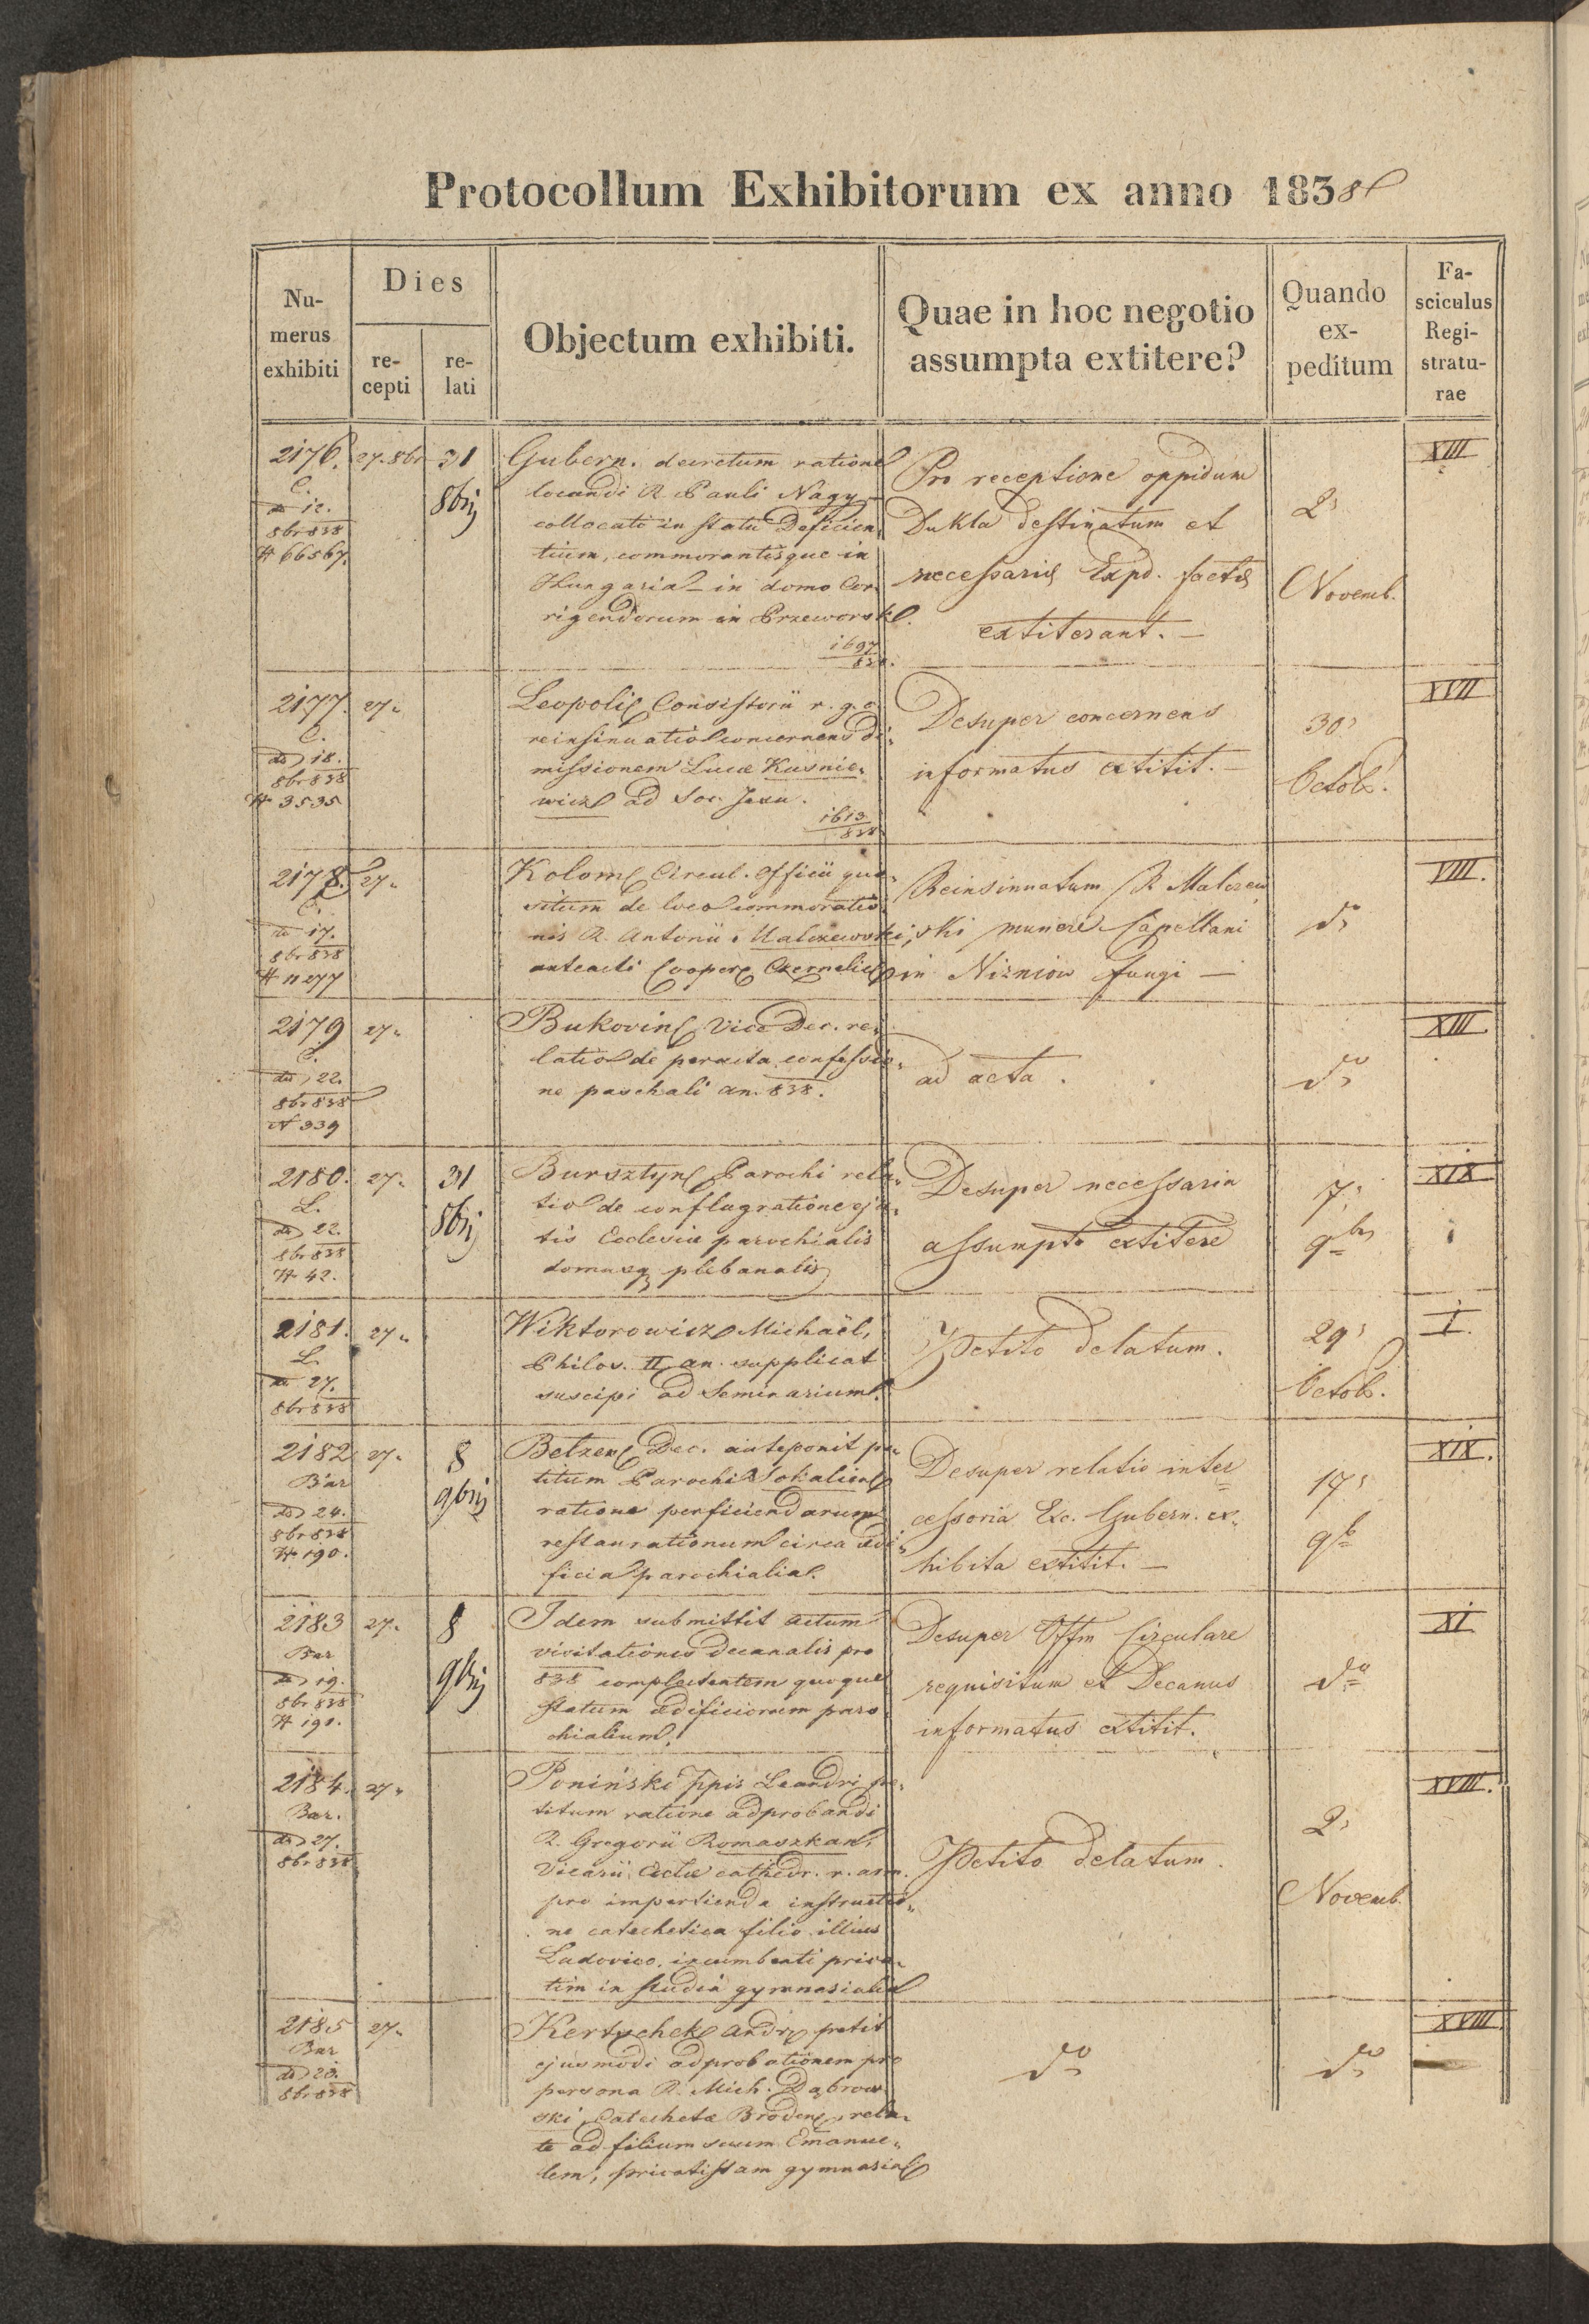 Protocollum Exhibitorum ex anno 1838
Nu-
merus
exhibiti
Dies
re-
cepti
re-
lati
Objectum exhibiti.
Quae in hoc negotio
assumpta extitere?
Quando
ex-
peditum
Fa-
sciculus
Regi-
stratu-
rae
2176. 27. 8br 31
8brij
C.
12.
8br 838
N 66567.
Gubern. decretum ratione
locandi R. Pauli Nagy
collocati in statu Deficien„
tium, commorantisque in
Hungaria – in domo Cor„
rigendorum in Przeworsk.
1697
838.
Pro receptione oppidum
Dukla destinatum et
necessaria Expd. facta
extiterant. –
2,
Novemb.
XIII
2177. 27.
C.
dd 18.
8br 838
N 3535
Leopoli Consistorii r. g. c.
reinsinuatio concernens di„
missionem Lucæ Kusnie„
wicz ad Soc. Jesu.
1613
838
Desuper concernens
informatus extitit. –
30,
Octob.
XVII
2178. 27.
C.
dd 17.
8br 838
N 11277
Kolom. Circul. Officii quæ„
situm de loco commoratio„
nis R. Antonii Malczewski,
anteacti Cooper. Czernelic.
Reinsinuatum R. Malczew
ski munere Capellani
in Nizniow fungi –
do
VIII.
2179 27.
C.
dd 22.
8br 838
N 339
Bukovin. Vice Dec. re„
latio de peracta confessio„
ne paschali an. 838.
ad acta.
do
XIII.
2180. 27. 31
8brij
L.
dd 22.
8br 838
N 42.
Bursztyn. Parochi rela„
tio de conflagratione eja„
tis Ecclesiæ parochialis
domusq plebanalis
Desuper necessaria
assumpta extitere
7,
9br
XIX
2181. 27.
L.
dd 27.
8br 838
Wiktorowicz Michaël,
Philos. II an. supplicat
suscipi ad Seminarium.
Petito delatum.
29,
Octob.
I.
2182 27. 8
9brij
Bar
dd 24.
8br 838
N 190.
Betzen. Dec. anteponit pe„
titum Parochi Sokalien.
ratione perficiendarum
restaurationum circa ædi„
ficia parochialia.
Desuper relatio inter
cessoria Exc. Gubern. ex„
hibita extitit. –
17,
9b
XIX.
2183 27. 8
9brij
Bar
dd 19.
8br 838
N 191.
Idem submittit actum
visitationis decanalis pro
838 complectentem quoque
statum ædificiorum paro
chialium.
Desuper Offm Circulare
requisitum et Decanus
informatus extitit.
do
XI
2184. 27.
Bar.
dd 27.
8br 838
Poniński Ppis Leandri pe„
titum ratione adprobandi
R. Gregorii Romaszkan,
Vicarii Ecclæ cathedr. r. arm.
pro impertienda instructio„
ne catechetica filio illius
Ludovico, incumbenti priva„
tim in studia gymnasialia
Petito delatum.
2,
Novemb.
XVIII.
2185 27.
Bar
dd 20.
8br 838
Kertschek Andr. petit
ejusmodi adprobationem pro
persona R. Mich. Dąbrow„
ski, Catechetæ Broden. rela„
te ad filium suum Emanue„
lem, privatistam gymnasial.
do
do
XVIII